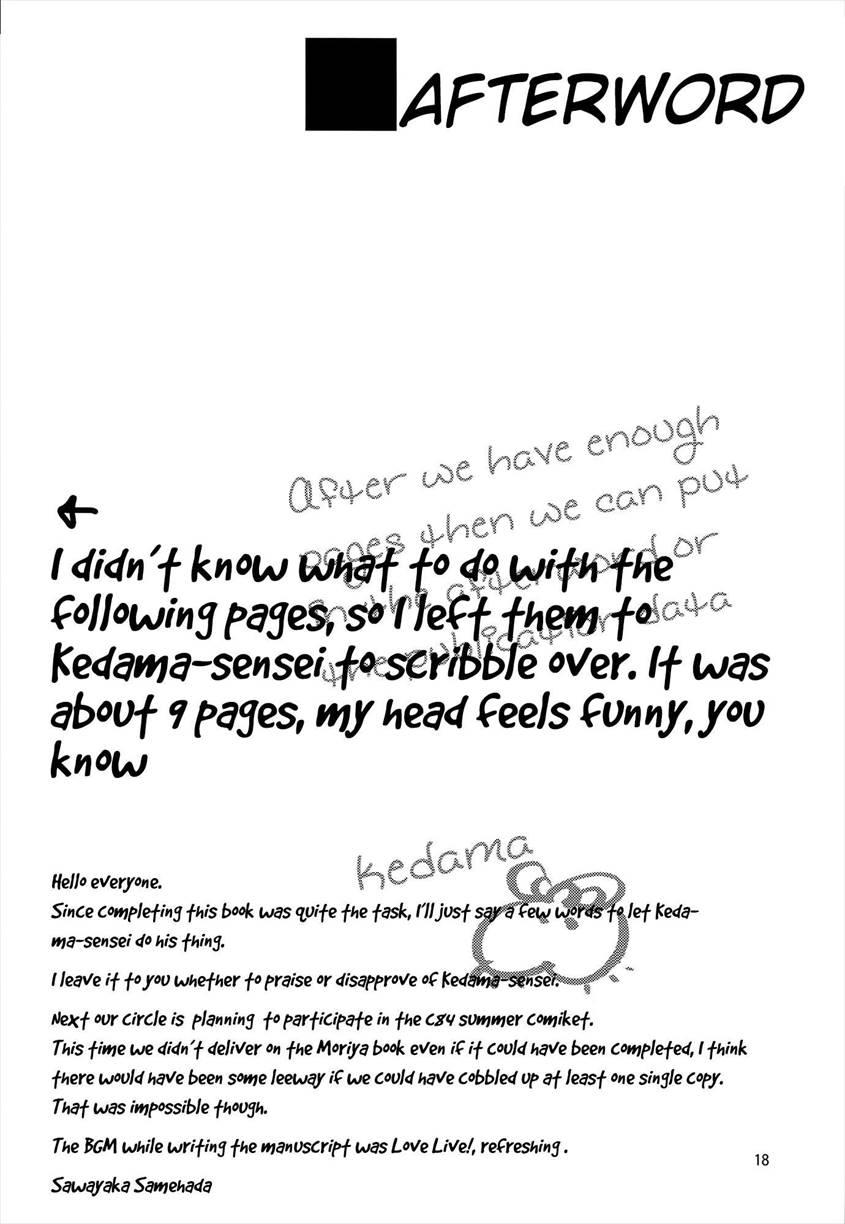 AFTERWORD
After we have enough
pages then we can put
on the after word or
the publication data
←
I didn't know what to do with the
following pages, so I left them to
Kedama-sensei to scribble over. It was
about 9 pages, my head feels funny, you
know
kedama
Hello everyone.
Since completing this book was quite the task, I'll just say a few words to let Keda-
ma-sensei do his thing.
I leave it to you whether to praise or disapprove of Kedama-sensei.
Next our circle is planning to participate in the C84 summer comiket.
This time we didn't deliver on the Moriya book even if it could have been completed, I think
there would have been some leeway if we could have cobbled up at least one single copy.
That was impossible though.
The BGM while writing the manuscript was Love Live!, refreshing.
18
Sawayaka Samehada